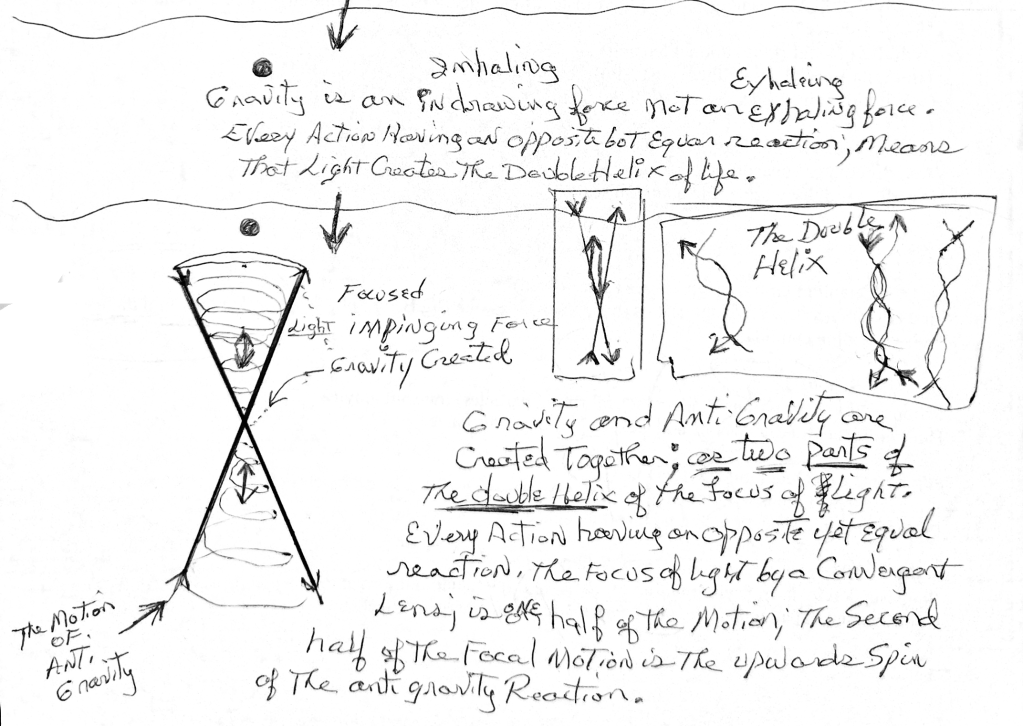 Inhaling
Exhaleing
Gravity is an indrawing force not an exhaling force.
Every Action Having an opposite bot Equal reaction; Means
That Light Creates The Double Helix of life.
The Double
Helix
Focused
Light impinging Force
Gravity Created
Gravity and Anti-Gravity are
Created Together; as two parts of
The double Helix of the Focus of Light.
Every Action having an opposite yet Equal
reaction. The Focus of light by a Convergent
Lens; is one half of the Motion; The Second
half of The Focal Motion is The upwards Spin
of The anti gravity Reaction.
The Motion
OF
ANTi-
Gravity